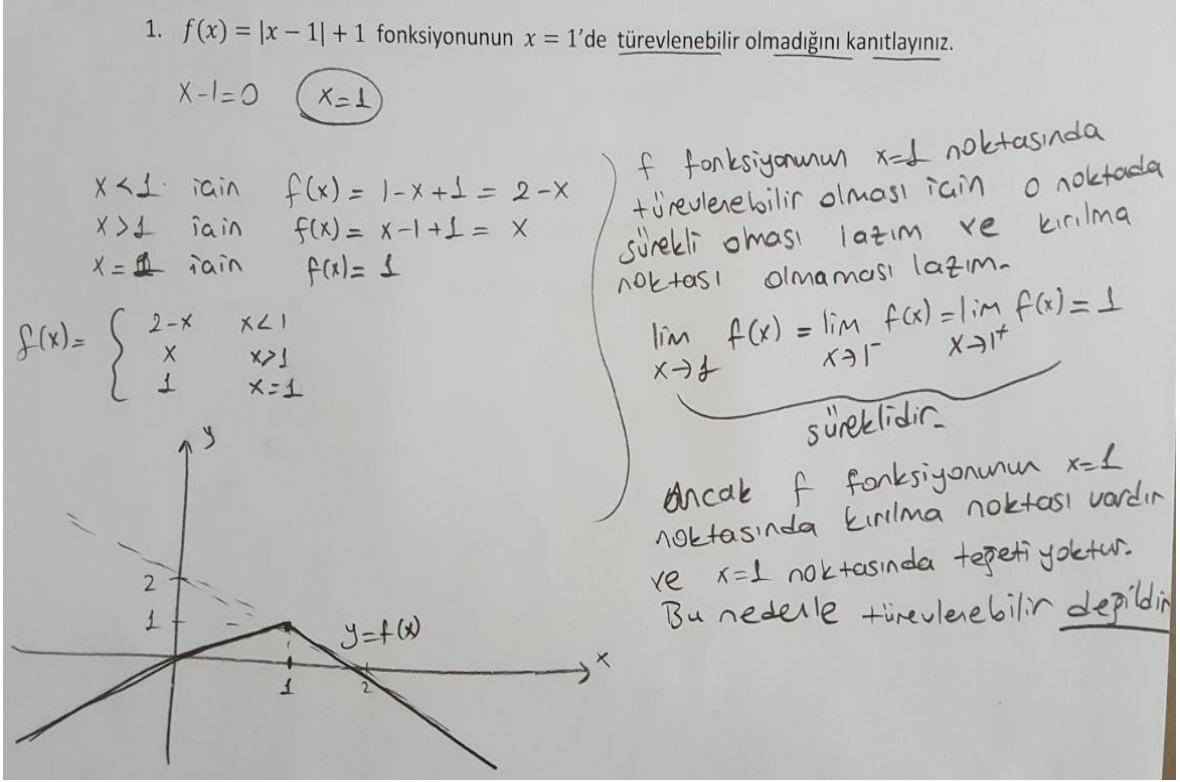 1. f(x) = |x – 1| + 1 fonksiyonunun x = 1'de türevlenebilir olmadığını kanıtlayınız.
x-1=0 x=1
x<1 için f(x) = 1-x+1 = 2-x
x>1 için f(x) = x-1+1 = x
x=1 için f(x)= 1
f(x)= { 2-x x<1
x x>1
1 x=1
y
2
1
y=f(x)
x
1
2
f fonksiyonunun x=1 noktasında
türevlenebilir olması için o noktada
sürekli oması lazım ve kırılma
noktası olmaması lazım.
lim f(x) = lim f(x) = lim f(x) = 1
x→1 x→1⁻ x→1⁺
süreklidir.
Ancak f fonksiyonunun x=1
noktasında kırılma noktası vardır
ve x=1 noktasında teğeti yoktur.
Bu nedenle türevlenebilir değildir